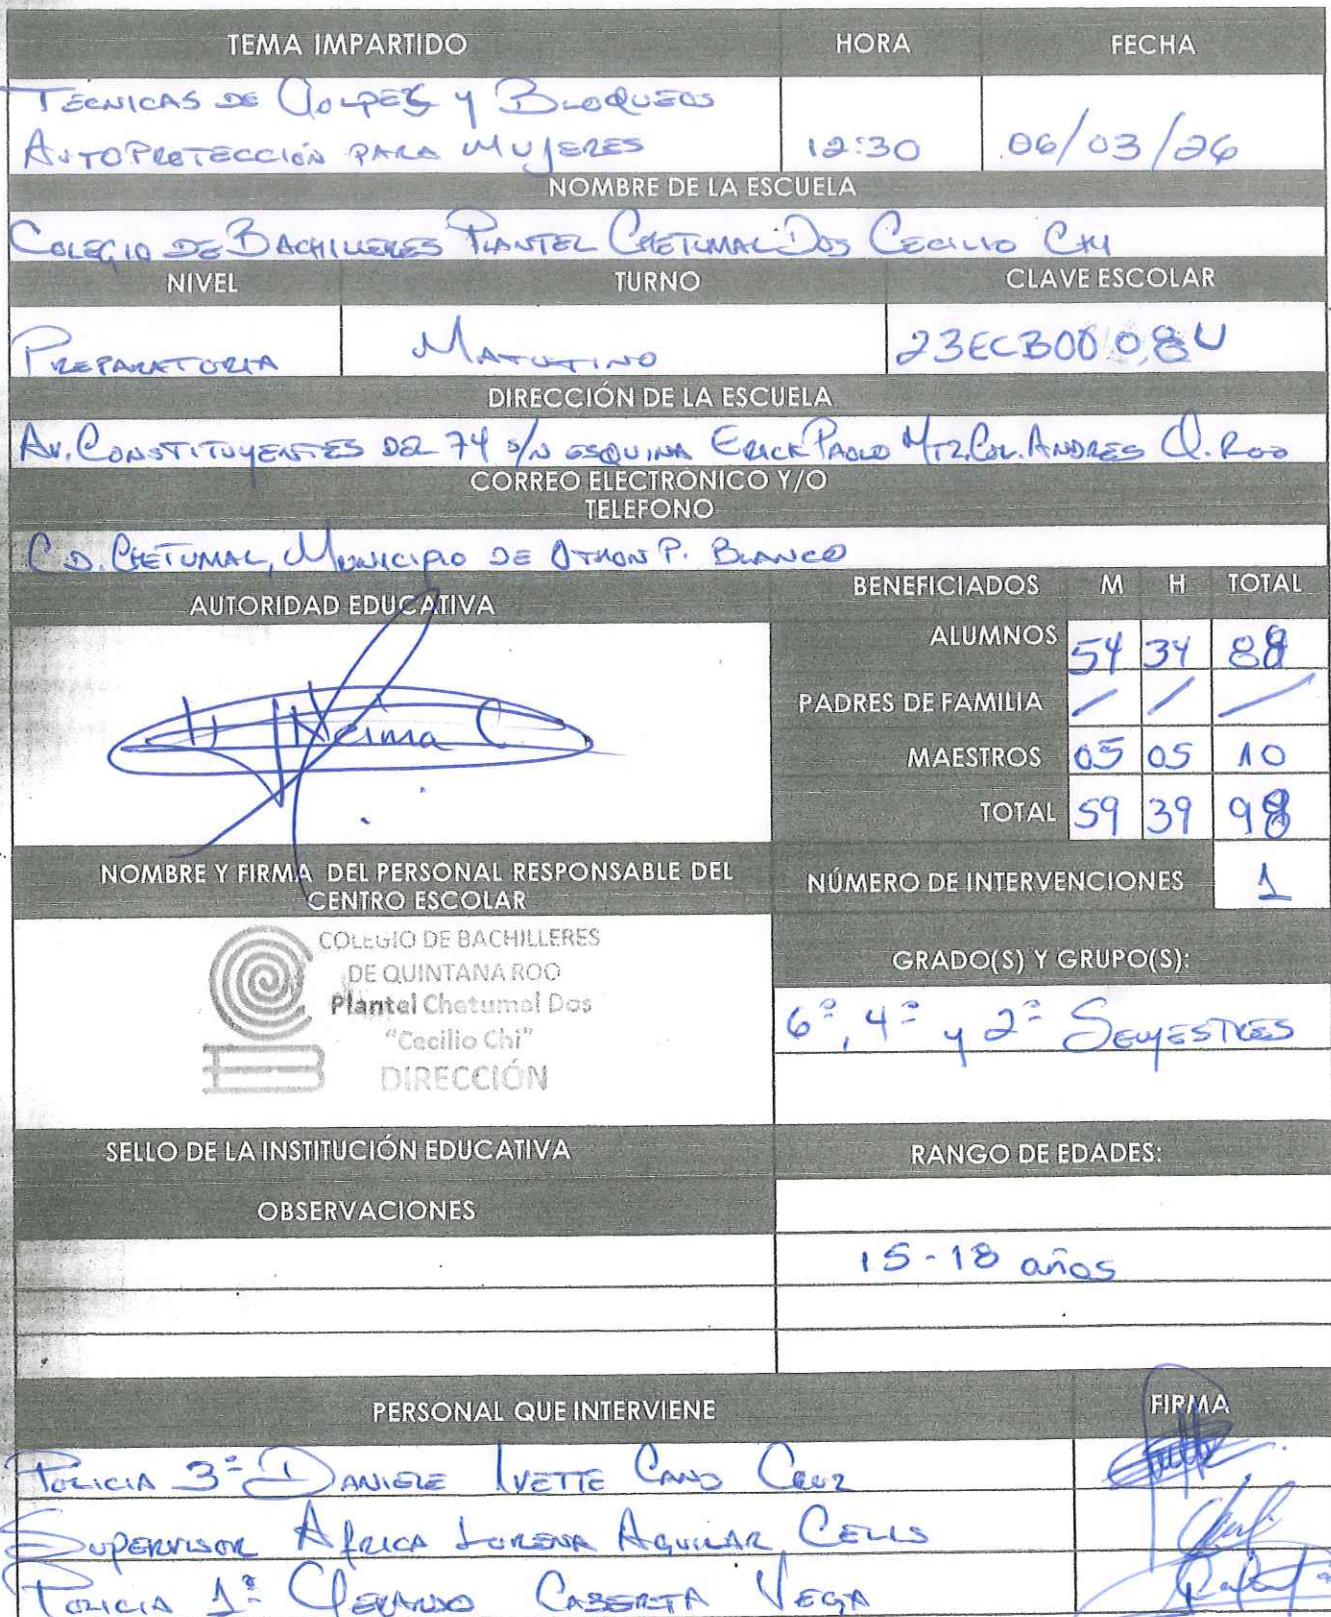 TEMA IMPARTIDO HORA FECHA
TECNICAS DE GOLPES Y BLOQUEOS
AUTOPROTECCIÓN PARA MUJERES 12:30 06/03/26
NOMBRE DE LA ESCUELA
COLEGIO DE BACHILLERES PLANTEL CHETUMAL DOS CECILIO CHI
NIVEL TURNO CLAVE ESCOLAR
PREPARATORIA MATUTINO 23ECB0008U
DIRECCIÓN DE LA ESCUELA
AV. CONSTITUYENTES DEL 74 S/N ESQUINA ERICK PAOLO MTZ. COL. ANDRES Q. ROO
CORREO ELECTRONICO Y/O
TELEFONO
CD. CHETUMAL, MUNICIPIO DE OTHON P. BLANCO
AUTORIDAD EDUCATIVA BENEFICIADOS M H TOTAL
ALUMNOS 54 34 88
PADRES DE FAMILIA / / /
MAESTROS 05 05 10
TOTAL 59 39 98
NOMBRE Y FIRMA DEL PERSONAL RESPONSABLE DEL
CENTRO ESCOLAR
NÚMERO DE INTERVENCIONES 1
COLEGIO DE BACHILLERES
DE QUINTANA ROO
Plantel Chetumal Dos
"Cecilio Chi"
DIRECCIÓN
GRADO(S) Y GRUPO(S):
6º, 4º y 2º SEMESTRES
SELLO DE LA INSTITUCIÓN EDUCATIVA RANGO DE EDADES:
OBSERVACIONES
15-18 años
PERSONAL QUE INTERVIENE FIRMA
POLICIA 3º DANIELE IVETTE CANO CRUZ
SUPERVISOR AFRICA LORENA AGUILAR CELIS
POLICIA 1º GERARDO CASERTA VEGA